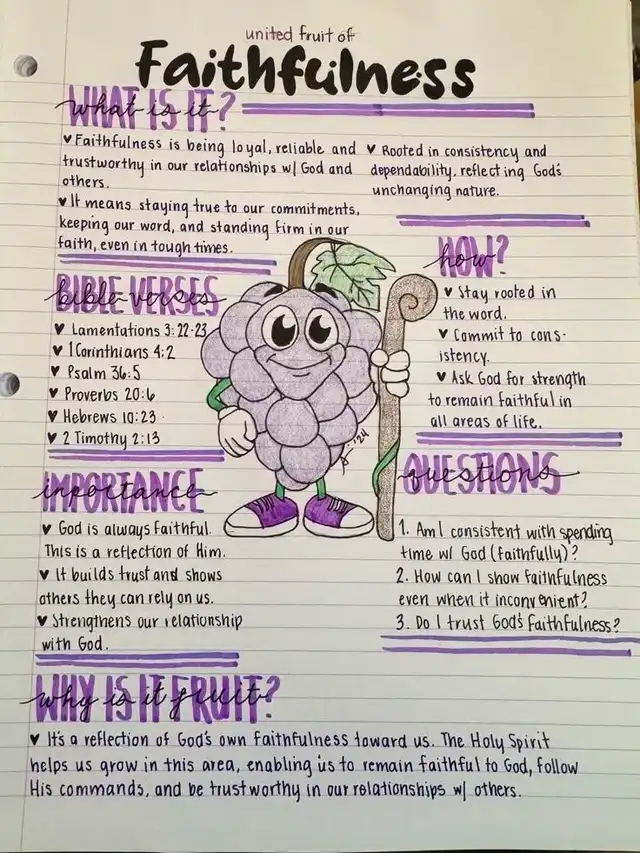 united fruit of
Faithfulness
WHAT IS IT?
♥ Faithfulness is being loyal, reliable and
trustworthy in our relationships w/ God and
others.
♥ It means staying true to our commitments,
keeping our word, and standing firm in our
faith, even in tough times.
♥ Rooted in consistency and
dependability, reflecting God's
unchanging nature.
HOW?
♥ Stay rooted in
the word.
♥ Commit to cons-
istency.
♥ Ask God for strength
to remain faithful in
all areas of life.
BIBLE VERSES
♥ Lamentations 3:22-23
♥ 1 Corinthians 4:2
♥ Psalm 36:5
♥ Proverbs 20:6
♥ Hebrews 10:23
♥ 2 Timothy 2:13
IMPORTANCE
♥ God is always faithful.
This is a reflection of Him.
♥ It builds trust and shows
others they can rely on us.
♥ Strengthens our relationship
with God.
QUESTIONS
1. Am I consistent with spending
time w/ God (faithfully)?
2. How can I show faithfulness
even when it inconvenient?
3. Do I trust God's faithfulness?
WHY IS IT FRUIT?
♥ It's a reflection of God's own faithfulness toward us. The Holy Spirit
helps us grow in this area, enabling us to remain faithful to God, follow
His commands, and be trustworthy in our relationships w/ others.
'24